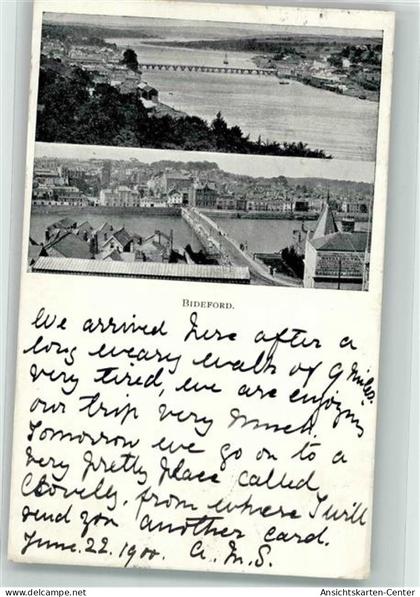 BIDEFORD.
We arrived here after a
long weary walk of 9 miles.
very tired, we are enjoying
our trip very much.
Tomorrow we go on to a
very pretty place called
Clovelly, from where I will
send you another card.
June. 22. 1900. A. M. S.
Ansichtskarten-Center